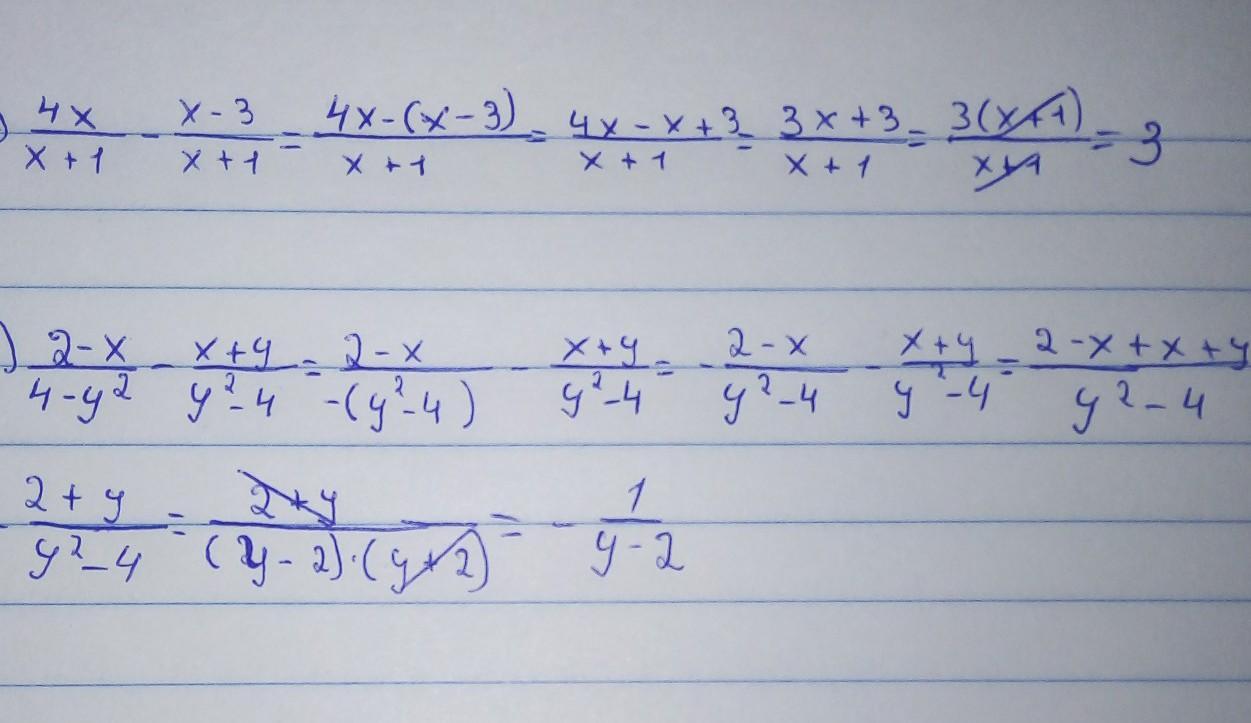 ) 4x/(x+1) - (x-3)/(x+1) = (4x-(x-3))/(x+1) = (4x-x+3)/(x+1) = (3x+3)/(x+1) = 3(x+1)/(x+1) = 3
) (2-x)/(4-y²) - (x+y)/(y²-4) = (2-x)/(-(y²-4)) - (x+y)/(y²-4) = -(2-x)/(y²-4) - (x+y)/(y²-4) = (2-x+x+y)/(y²-4)
-(2+y)/(y²-4) = (2+y)/((y-2)·(y+2)) = -1/(y-2)